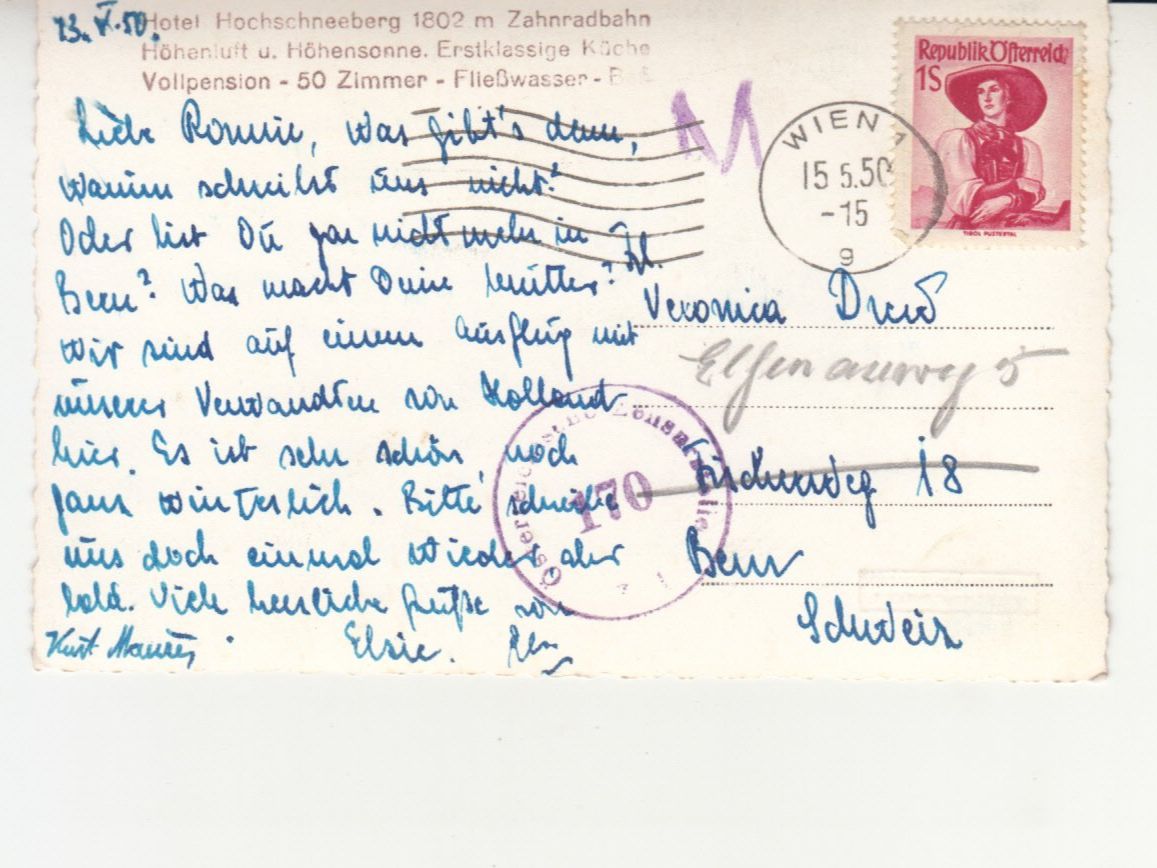 13. V. 50.
Hotel Hochschneeberg 1802 m Zahnradbahn
Höhenluft u. Höhensonne. Erstklassige Küche
Vollpension - 50 Zimmer - Fließwasser -
Liebe Ronnie, was gibt's denn,
warum schreibst uns nicht?
Oder bist Du gar nicht mehr in
Bern? Was macht Deine Mutter?
Wir sind auf einem Ausflug mit
unseren Verwandten von Holland
hier. Es ist sehr schön, noch
ganz winterlich. Bitte schreibe
uns doch einmal wieder, aber
bald. Viele herzliche Grüße von
Kurt
Elsie.
Republik Österreich
1S
TIROL PUSTERTAL
WIEN 1
15 5.50
-15
9
Frl.
Veronica
Elfenauweg 5
18
Bern
Schweiz
Österreichische Zensurstelle
170